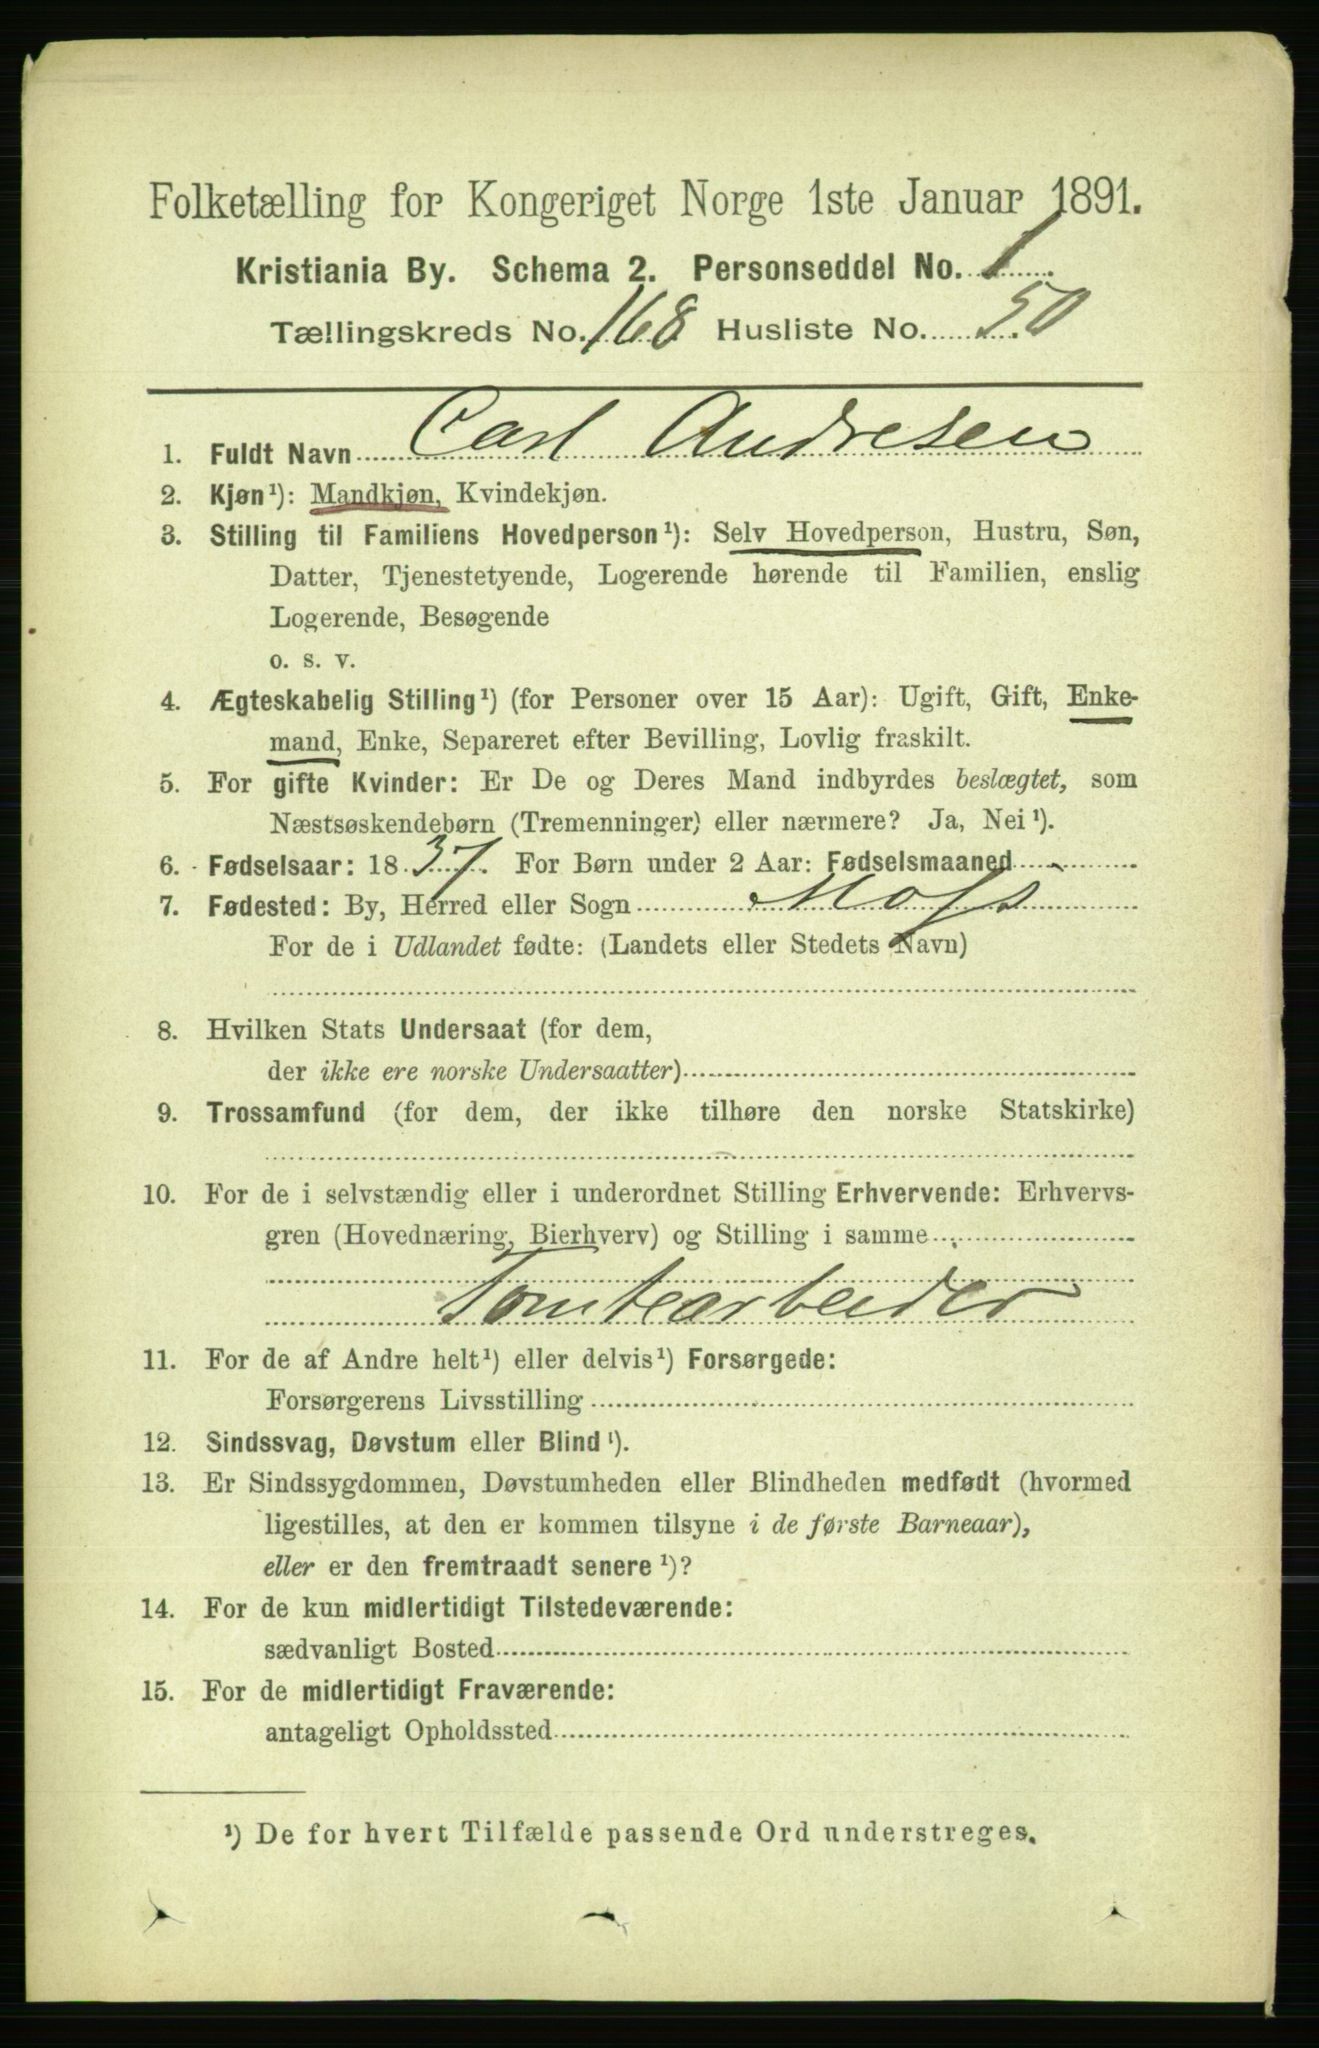 Folketælling for Kongeriget Norge 1ste Januar 1891.
Kristiania By. Schema 2. Personseddel No. 1
Tællingskreds No. 168 Husliste No. 50
1. Fuldt Navn Carl Andresen
2. Kjøn¹): Mandkjøn, Kvindekjøn.
3. Stilling til Familiens Hovedperson¹): Selv Hovedperson, Hustru, Søn,
Datter, Tjenestetyende, Logerende hørende til Familien, enslig
Logerende, Besøgende
o. s. v.
4. Ægteskabelig Stilling¹) (for Personer over 15 Aar): Ugift, Gift, Enke-
mand, Enke, Separeret efter Bevilling, Lovlig fraskilt.
5. For gifte Kvinder: Er De og Deres Mand indbyrdes beslægtet, som
Næstsøskendebørn (Tremenninger) eller nærmere? Ja, Nei¹).
6. Fødselsaar: 1837. For Børn under 2 Aar: Fødselsmaaned
7. Fødested: By, Herred eller Sogn Moss
For de i Udlandet fødte: (Landets eller Stedets Navn)
8. Hvilken Stats Undersaat (for dem,
der ikke ere norske Undersaatter)
9. Trossamfund (for dem, der ikke tilhøre den norske Statskirke)
10. For de i selvstændig eller i underordnet Stilling Erhvervende: Erhvervs-
gren (Hovednæring, Bierhverv) og Stilling i samme
Tomtearbeider
11. For de af Andre helt¹) eller delvis¹) Forsørgede:
Forsørgerens Livsstilling
12. Sindssvag, Døvstum eller Blind¹).
13. Er Sindssygdommen, Døvstumheden eller Blindheden medfødt (hvormed
ligestilles, at den er kommen tilsyne i de første Barneaar),
eller er den fremtraadt senere¹)?
14. For de kun midlertidigt Tilstedeværende:
sædvanligt Bosted
15. For de midlertidigt Fraværende:
antageligt Opholdssted
¹) De for hvert Tilfælde passende Ord understreges.